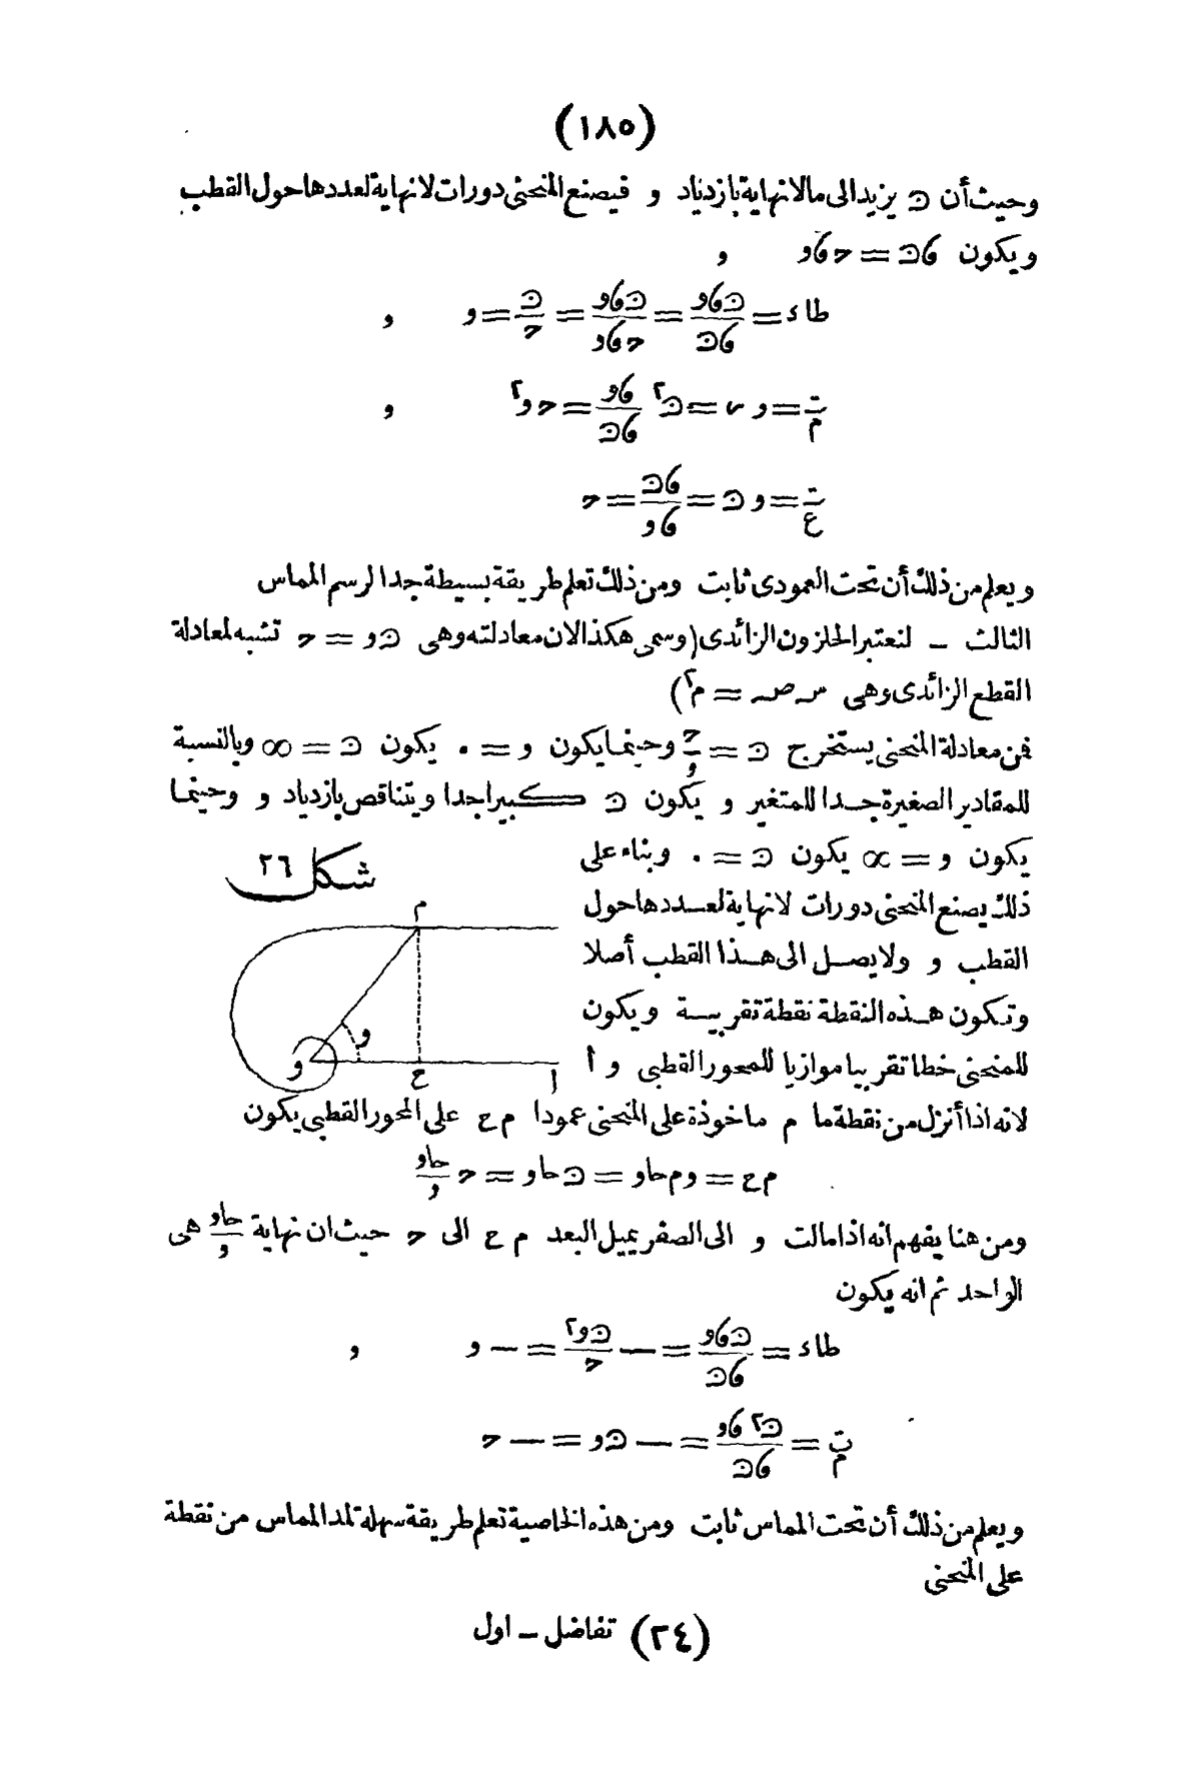 (١٨٥)
وحيث أن ں يزيد الى مالانهاية بازدياد و فيصنع المنحنى دورات لانهاية لعددها حول القطب
ويكون ڡاں = حـ ڡاو و
طاء = ں ڡاو / ڡاں = ں ڡاو / حـ ڡاو = ں / حـ = و و
ت م = و س = ں٢ ڡاو / ڡاں = حـ و٢ و
ت ع = و ں = ڡاں / ڡاو = حـ
ويعلم من ذلك أن تحت العمودى ثابت ومن ذلك تعلم طريقة بسيطة جدا لرسم المماس
الثالث ـ لنعتبر الحلزون الزائدى (وسمى هكذا الان معادلته وهى ں و = حـ تشبه لمعادلة
القطع الزائدى وهى س صـ = م٢)
فمن معادلة المنحنى يستخرج ں = حـ / و وحينما يكون و = ٠ يكون ں = ∞ وبالنسبة
للمقادير الصغيرة جدا للمتغير و يكون ں كبيرا جدا ويتناقص بازدياد و وحينما
يكون و = ∞ يكون ں = ٠ وبناء على
شكل ٢٦
ذلك يصنع المنحنى دورات لانهاية لعددها حول
القطب و ولا يصل الى هذا القطب أصلا
وتكون هذه النقطة نقطة تقريبية ويكون
للمنحنى خطا تقريبيا موازيا للمحور القطبى و أ
م
و
و
ع
أ
لانه اذا أنزل من نقطة ما م ماخوذة على المنحنى عمودا م ع على المحور القطبى يكون
م ع = و م حاو = ں حاو = حـ حاو / و
ومن هنا يفهم انه اذا مالت و الى الصفر يميل البعد م ع الى حـ حيث ان نهاية حاو / و هى
الواحد ثم انه يكون
طاء = ں ڡاو / ڡاں = — ں و٢ / حـ = — و و
ت م = ں٢ ڡاو / ڡاں = — ں و = — حـ
ويعلم من ذلك أن تحت المماس ثابت ومن هذه الخاصية تعلم طريقة سهلة لمد المماس من نقطة
على المنحنى
(٢٤) تفاضل ـ اول